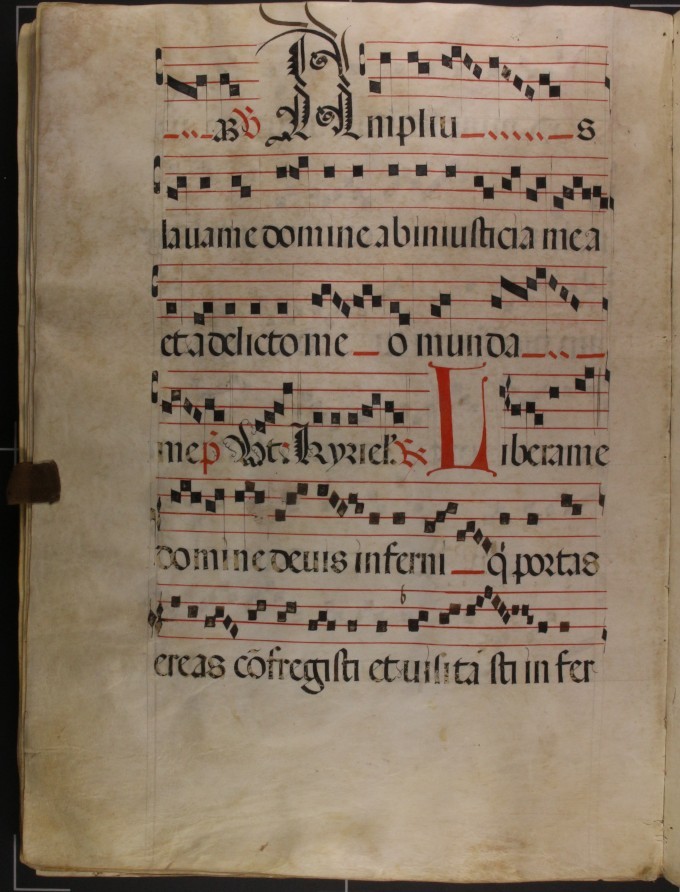 ℣ Ampliu s
laua me domine ab iniusticia mea
et a delicto me o munda
me p̄ kyriel. ℟ Libera me
domine de uiis inferni q̄ portas
ereas cōfregisti et uisitasti in fer